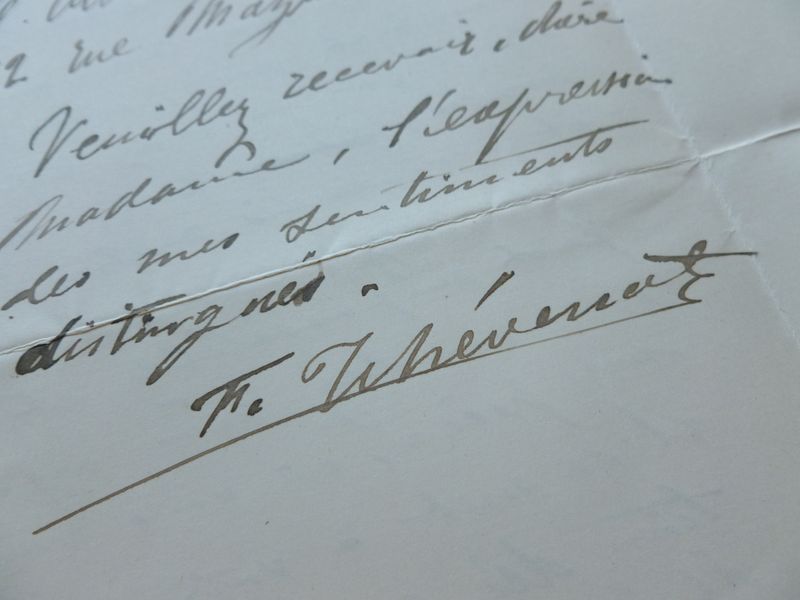 2 rue
Veuillez recevoir, chère
Madame, l'expression
des mes sentiments
distingués.
F. Thévenot